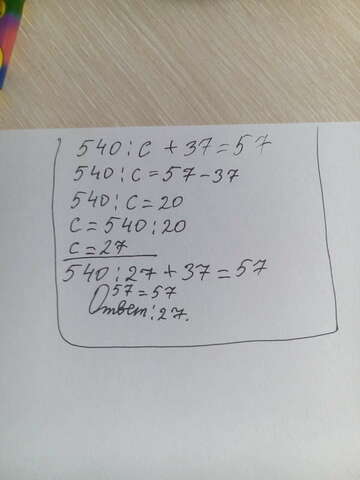 540:c + 37=57
540:c=57-37
540:c=20
c=540:20
c=27
540:27+37=57
57=57
Ответ:27.